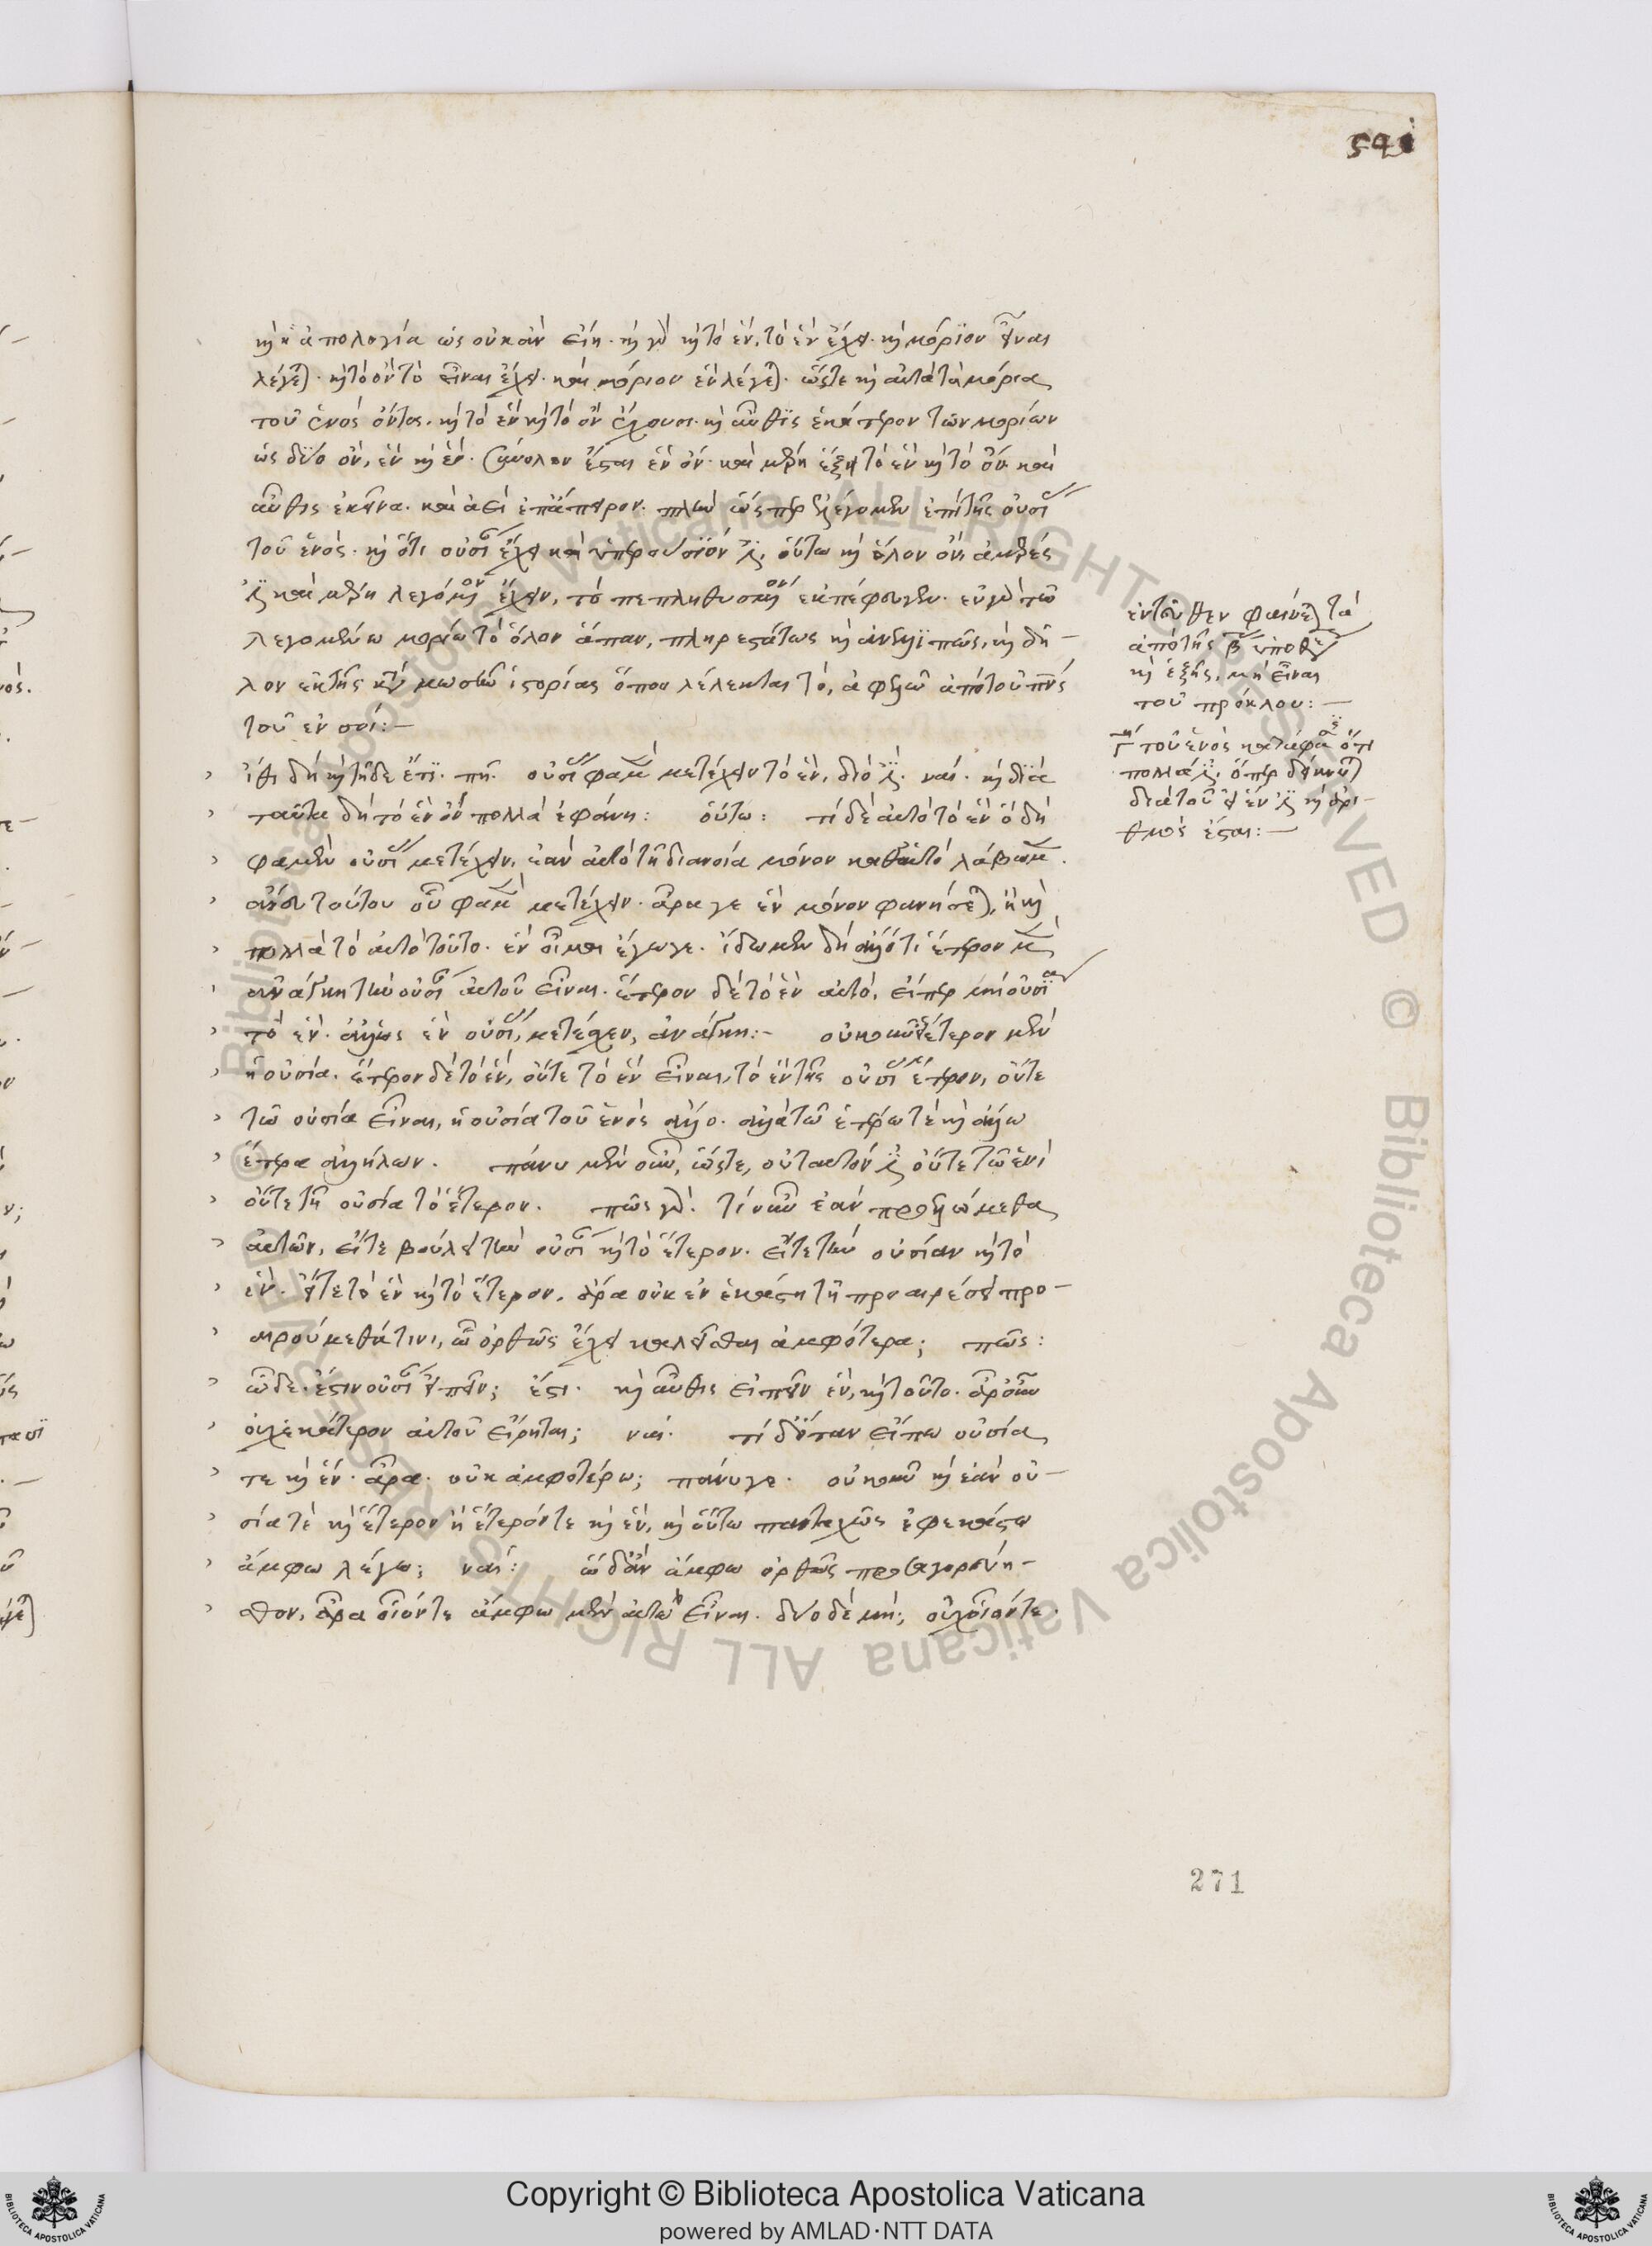 541
καὶ ἡ ἀπολογία ὡς οὐκ ἂν εἴη. καὶ γὰρ καὶ τὸ ἓν, τὸ ἓν ἔχει. καὶ μόριον εἶναι
λέγεται. καὶ τὸ ὂν τὸ εἶναι ἔχει. καὶ μόριον ἓν λέγεται. ὥστε καὶ αὐτὰ τὰ μόρια
τοῦ ἑνὸς ὄντος. καὶ τὸ ἓν καὶ τὸ ὂν ἔχουσι. καὶ αὖθις ἑκάτερον τῶν μορίων
ὡς δύο ὂν, ἓν καὶ ἓν. σύνολον ἔσται ἓν ὄν. καὶ μέρη ἕξει τὸ ἓν καὶ τὸ ὄν. καὶ
αὖθις ἐκεῖνα. καὶ ἀεὶ ἐπάπειρον. πλὴν ὥσπερ ἐλέγομεν ἐπὶ τῆς οὐσίας
τοῦ ἑνός. καὶ ὅτι οὐσίαν ἔχει καὶ ὑπερούσιόν ἐστι. οὕτω καὶ ὅλον ὂν ἀμερές
ἐστι καὶ μέρη λεγόμενον ἔχειν, τὸ πεπληθυσμένον ἐκπέφευγεν. ἐν γὰρ τῶ
λεγομένω μορίω τὸ ὅλον ἅπαν, πληρεστάτως καὶ ἀνελλιπῶς, καὶ δῆ-
λον ἐκ τῆς κατὰ μωσέα ἱστορίας ὅπου λέλεκται τὸ, ἀφελῶ ἀπὸ τοῦ πνεύματος
τοῦ ἐν σοί:—
ἴθι δὴ καὶ τῆδε ἔτι. πῆ. οὐσίας φαμὲν μετέχειν τὸ ἓν, διὸ ἐστι. ναί. καὶ διὰ
ταῦτα δὴ τὸ ἓν ὂν πολλὰ ἐφάνη: οὕτω: τί δὲ αὐτὸ τὸ ἓν ὃ δὴ
φαμὲν οὐσίας μετέχειν, ἐὰν αὐτὸ τῆ διανοία μόνον καθ' αὑτὸ λάβωμεν.
ἄνευ τούτου οὗ φαμὲν μετέχειν. ἆρά γε ἓν μόνον φανήσεται, ἢ καὶ
πολλὰ τὸ αὐτὸ τοῦτο. ἓν οἶμαι ἔγωγε. ἴδωμεν δὴ ἄλλό τι ἕτερον μὲν
ἀνάγκη τὴν οὐσίαν αὐτοῦ εἶναι. ἕτερον δὲ τὸ ἓν αὐτό, εἴπερ μὴ οὐσία
τὸ ἕν. ἀλλ' ὡς ἓν οὐσίας μετέχειν, ἀνάγκη:— οὐκοῦν εἰ ἕτερον μὲν
ἡ οὐσία. ἕτερον δὲ τὸ ἕν, οὔτε τὸ ἓν εἶναι, τὸ ἓν τῆς οὐσίας ἕτερον, οὔτε
τῶ οὐσία εἶναι, ἡ οὐσία τοῦ ἑνὸς ἄλλο. ἀλλὰ τῶ ἑτέρω τὲ καὶ ἄλλω
ἕτερα ἀλλήλων. πάνυ μὲν οὖν, ὥστε, οὐ ταυτόν ἐστι οὔτε τῶ ἑνὶ
οὔτε τῆ οὐσία τὸ ἕτερον. πῶς γάρ. τί οὖν ἐὰν προελώμεθα
αὐτῶν, εἴτε βούλει τὴν οὐσίαν καὶ τὸ ἕτερον. εἴτε τὴν οὐσίαν καὶ τὸ
ἕν. εἴτε τὸ ἓν καὶ τὸ ἕτερον. ἆρα οὐκ ἐν ἑκάστη τῆ προαιρέσει προ-
αιρούμεθά τινι, ὣ ὀρθῶς ἔχει καλεῖσθαι ἀμφότερα; πῶς:
ὧδε. ἔστιν οὐσίαν εἰπεῖν; ἔστι. καὶ αὖθις εἰπεῖν ἕν, καὶ τοῦτο. ἆρ' οὖν
οὐχ ἑκάτερον αὐτοῦ εἴρηται; ναί. τί δ' ὅταν εἴπω οὐσία
τε καὶ ἕν. ἆρα. οὐκ ἀμφοτέρω; πάνυ γε. οὐκοῦν καὶ ἐὰν οὐ-
σία τὲ καὶ ἕτερον ἢ ἕτερόν τε καὶ ἕν, καὶ οὕτω πανταχῶς ἐφ' ἑκάστω
ἄμφω λέγω; ναί: ὣ δ' ἂν ἄμφω ὀρθῶς προσαγορεύη-
σθον, ἆρα οἷόν τε ἄμφω μὲν αὐτὼ εἶναι. δύο δὲ μή; οὐχ οἷόν τε.
ἐντεῦθεν φαίνεται τὰ
ἀπὸ τῆς β ὑποθέσεως
καὶ ἑξῆς, μὴ εἶναι
τοῦ πρόκλου:—
γ τοῦ ἑνὸς κατάφασις ὅτι
πολλά ἐστι. ὅπερ δείκνυται
διὰ τοῦ εἰ ἕν ἐστι καὶ ἀρι-
θμὸς ἔσται:—
271
© Biblioteca Apostolica Vaticana ALL RIGHTS RESERVED
Copyright © Biblioteca Apostolica Vaticana
powered by AMLAD·NTT DATA
BIBLIOTECA APOSTOLICA VATICANA
BIBLIOTECA APOSTOLICA VATICANA